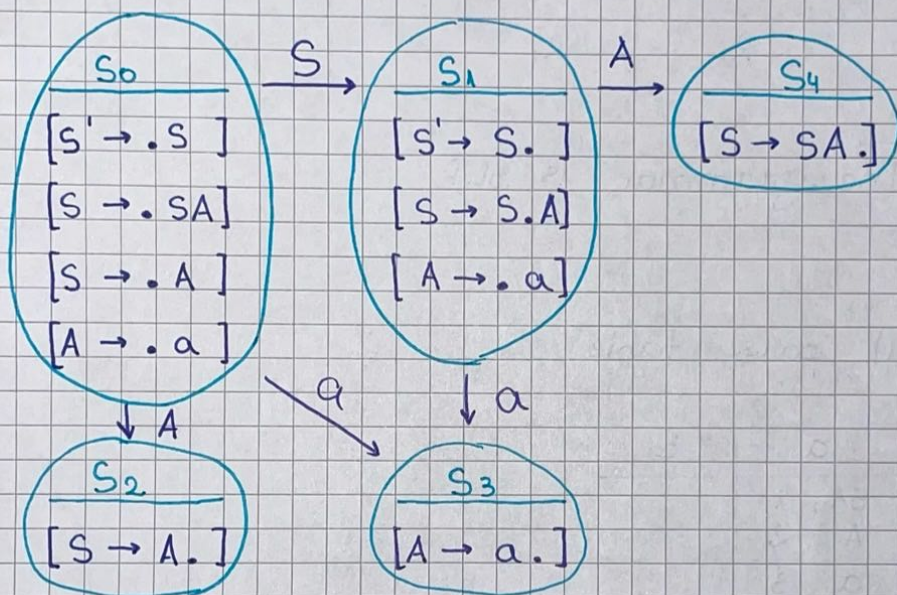 S0
[S' → .S ]
[S → . SA]
[S → . A ]
[A → . a ]
S
S1
[S' → S. ]
[S → S.A]
[A → . a]
A
S4
[S → SA.]
A
a
a
S2
[S → A. ]
S3
[A → a. ]